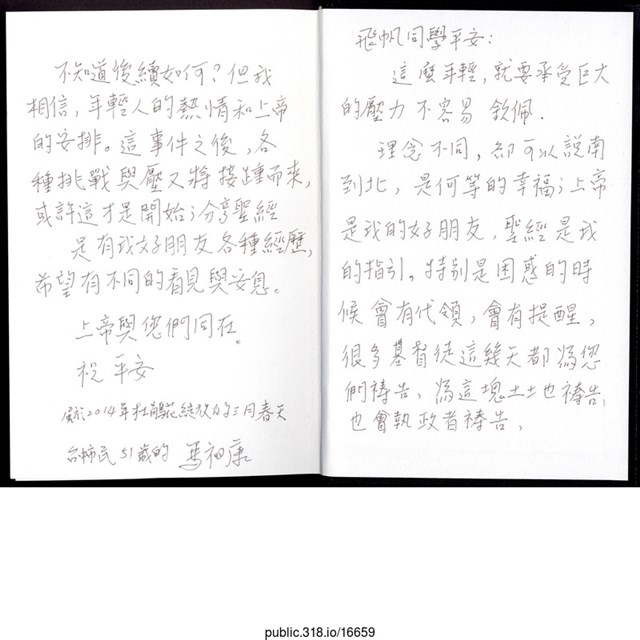 飛帆同學平安:
這麼年輕,就要承受巨大
的壓力不容易 欽佩.
理念不同,卻可以說南
到北,是何等的幸福;上帝
是我的好朋友,聖經是我
的指引。特別是困惑的時
候會有代領,會有提醒,
很多基督徒這幾天都為您
們禱告,為這塊土土也禱告,
也會執政者禱告,
不知道後續如何?但我
相信,年輕人的熱情和上帝
的安排。這事件之後,各
種挑戰與壓又將接踵而來,
或許這才是開始;分享聖經
是有我好朋友各種經歷,
希望有不同的看見與安息。
上帝與您們同在。
祝 平安
2014年杜鵑花綻放的三月春天
台北市民51歲的 馬祖康
public.318.io/16659